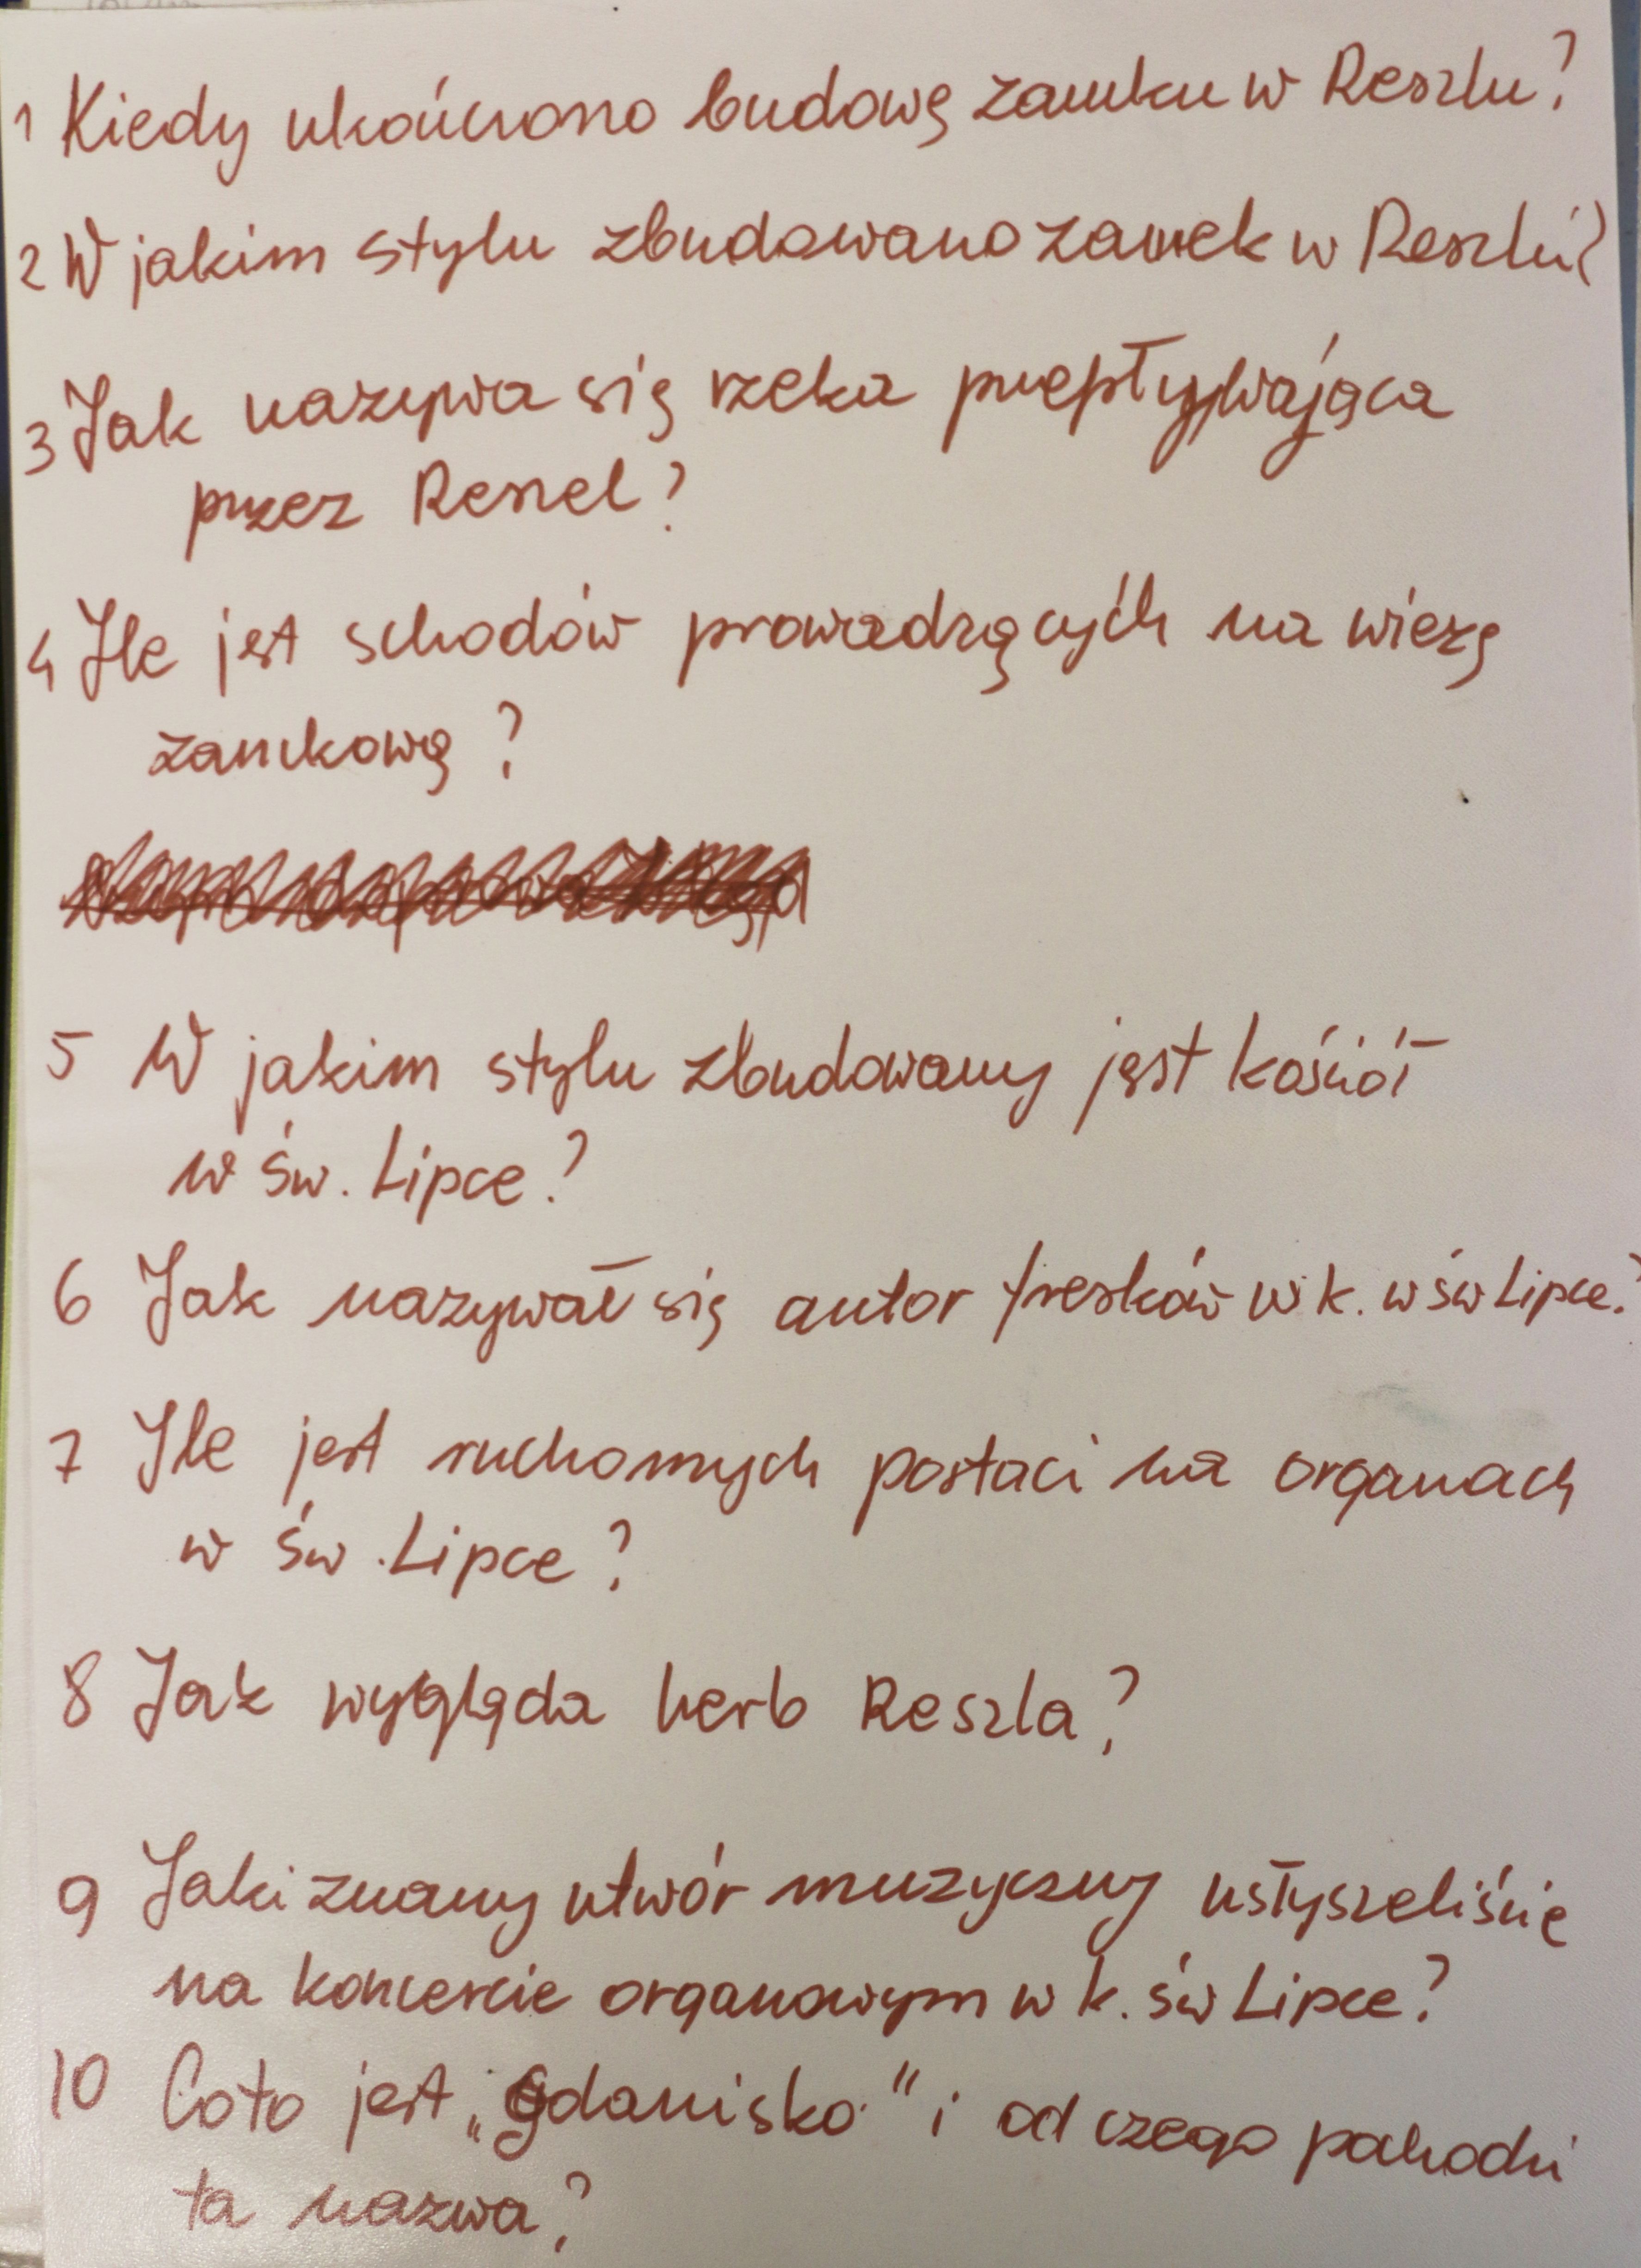 1 Kiedy ukończono budowę zamku w Reszlu?
2 W jakim stylu zbudowano zamek w Reszlu?
3 Jak nazywa się rzeka przepływająca
przez Reszel?
4 Ile jest schodów prowadzących na wieżę
zamkową?
5 W jakim stylu zbudowany jest kościół
w św. Lipce?
6 Jak nazywał się autor fresków w k. w św Lipce?
7 Ile jest ruchomych postaci na organach
w św. Lipce?
8 Jak wygląda herb Reszla?
9 Jaki znany utwór muzyczny usłyszeliście
na koncercie organowym w k. św Lipce?
10 Co to jest „gdanisko" i od czego pochodzi
ta nazwa?